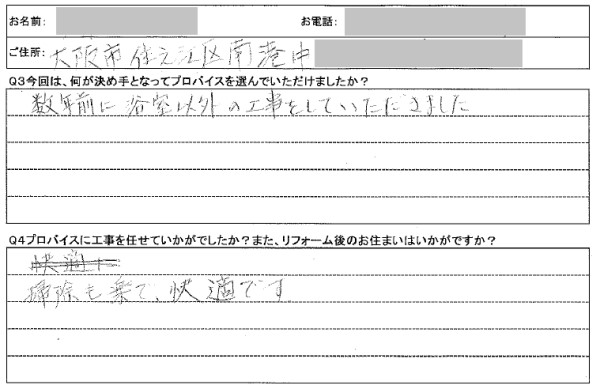 お名前: お電話:
ご住所: 大阪市住之江区南港中
Q3今回は、何が決め手となってプロバイスを選んでいただけましたか?
数年前に浴室以外の工事をしていただきました
Q4プロバイスに工事を任せていかがでしたか?また、リフォーム後のお住まいはいかがですか?
掃除も楽で、快適です